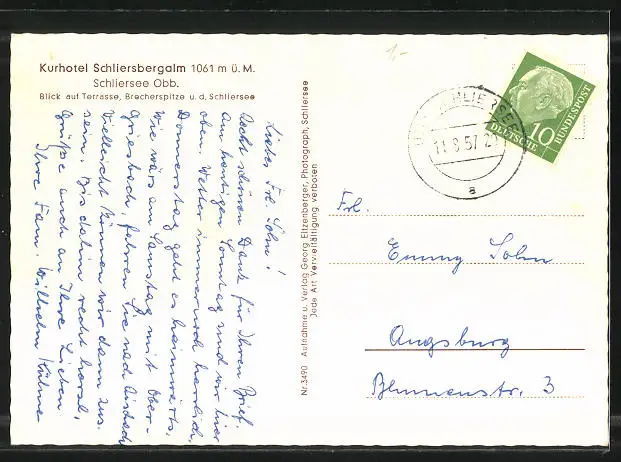 Kurhotel Schliersbergalm 1061 m ü. M.
Schliersee Obb.
Blick auf Terrasse, Brecherspitze u. d. Schliersee
Liebe Frl. Sohn!
Recht schönen Dank für Ihren Brief.
Am heutigen Sonntag sind wir hier
oben. Wetter immer noch herrlich.
Donnerstag geht es heimwärts.
Wie wärs am Samstag mit Ober-
griesbach, fahren Sie nach Aichach
vielleicht können wir dann zus.
sein. Bis dahin recht herzl.
Grüße auch an Ihre Lieben.
Ihre Fam. Wilhelm Kühne
Nr. 3490 Aufnahme u. Verlag Georg Eltzenberger, Photograph, Schliersee
Jede Art Vervielfältigung verboten
1,-
SCHLIERSEE
11.8.57
a
DEUTSCHE
10
BUNDESPOST
Frl.
Emmy Sohn
Augsburg
Blumenstr. 3